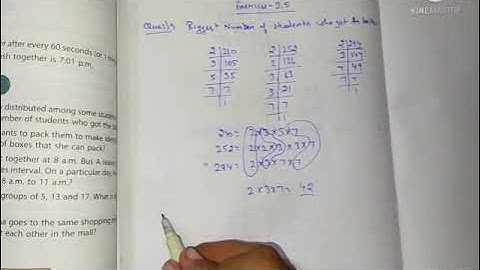 Exercise - 2.5
Made with
KINEMASTER
Ques1): Biggest Number of students who got the books
2 | 210
3 | 105
5 | 35
7 | 7
1
2 | 252
2 | 126
3 | 63
3 | 21
7 | 7
1
2 | 294
3 | 147
7 | 49
7 | 7
1
210= 2×3×5×7
252= 2×2×3×3×7
= 294= 2×3×7×7
2×3×7= 42
er after every 60 seconds (or 1
ash together is 7:01 p.m.
distributed among some stude
umber of students who got the
ants to pack them to make iden
of boxes that she can pack)
together at 8 am. But A leave
es interval. On a particular day, he
8 a.m. to 11 a.m.?
groups of 5, 13 and 17. What is
a goes to the same shopping m
r each other in the mall?